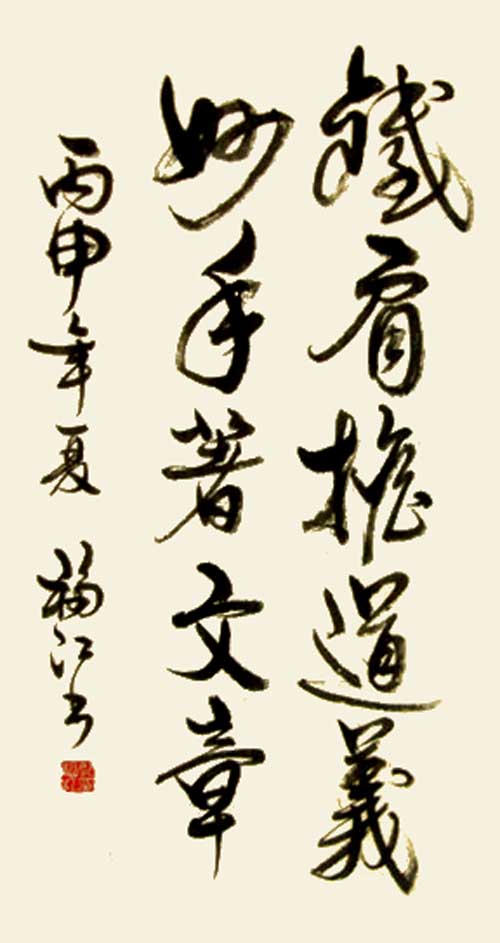 鐵肩擔道義
妙手著文章
丙申年夏 楊江书